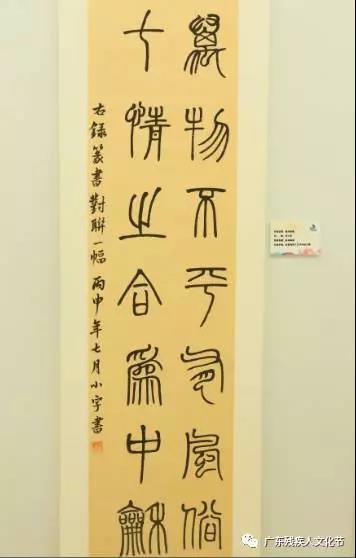 萬物不平風俗
七情之合爲中龢
右錄篆書對聯一幅 丙申年七月小字書
广东残疾人文化节